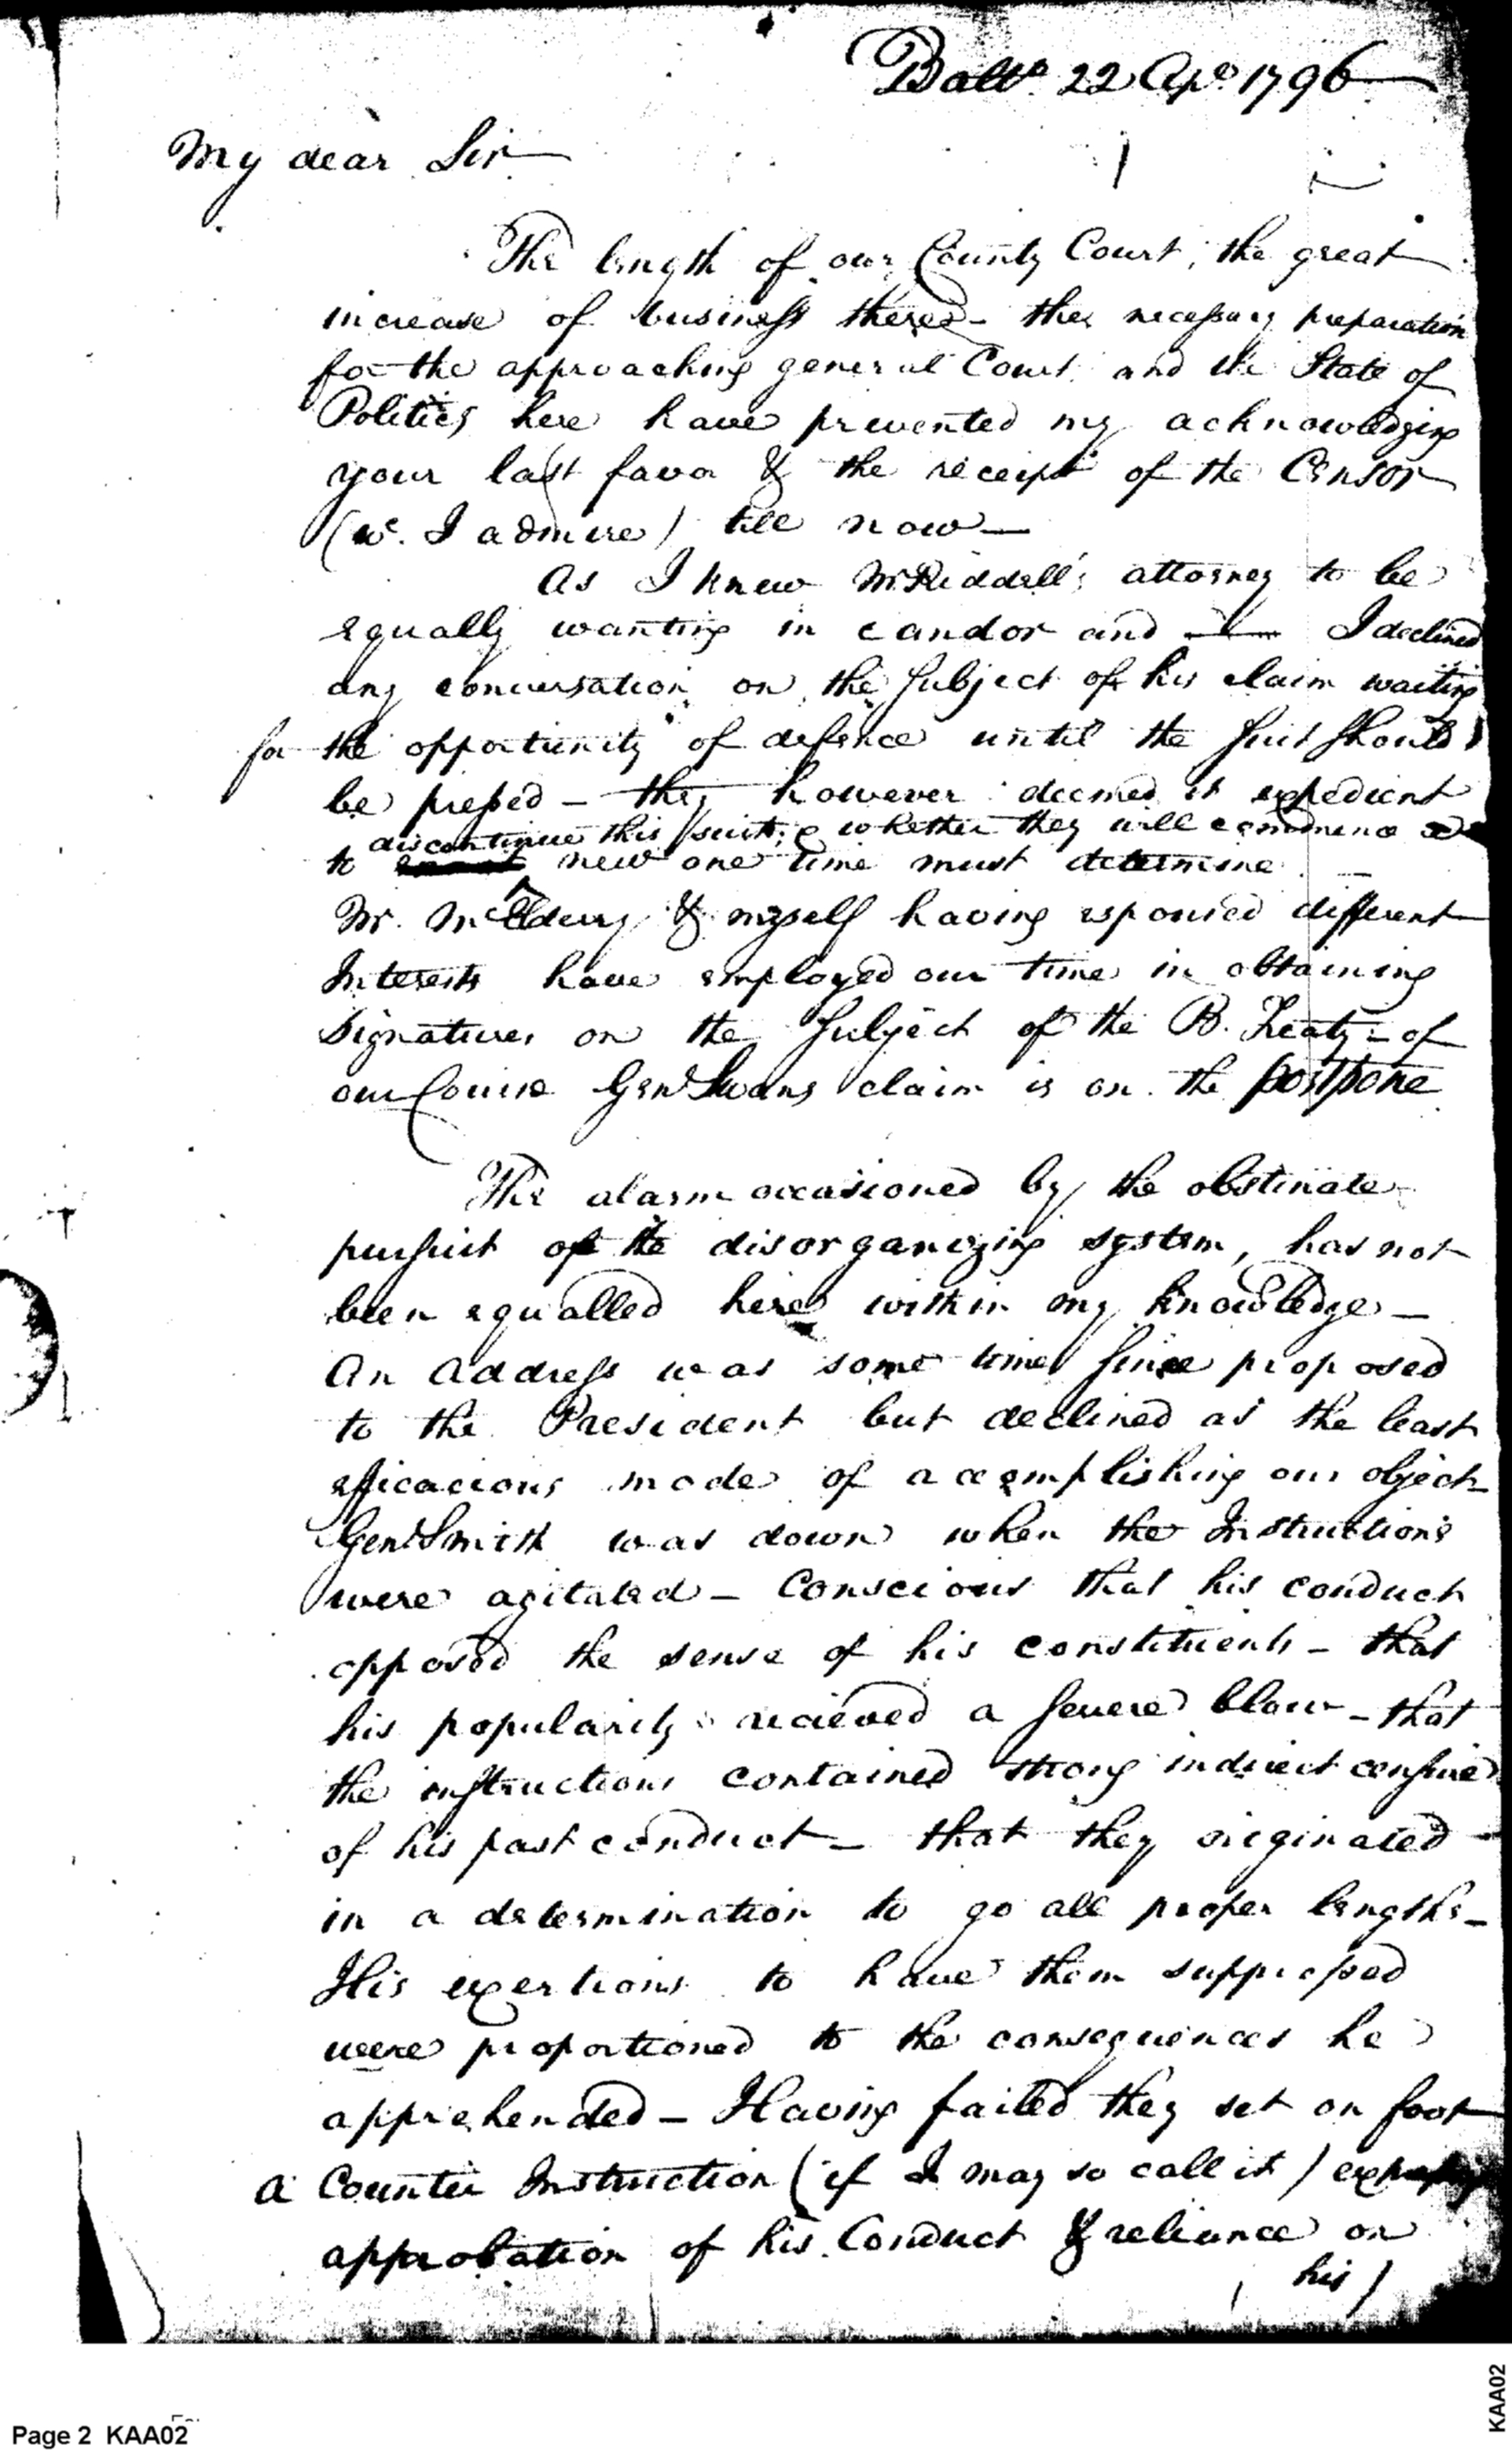 Balto. 22 Apl. 1796
My dear Sir
The length of our County Court, the great
increase of business there - the necessary preparation
for the approaching general Court and the State of
Politics here have prevented my acknowledging
your last favor & the receipt of the Censor
(wc. I admire) till now —
As I knew Mr Riddell's attorney to be
equally wanting in candor and —— I declined
any conversation on the Subject of his claim waiting
for the opportunity of defence until the Suit Should
be pressed - they however deemed it expedient
discontinue this suit; & whether they will commence a
to new one time must determine
Mr. McElderry & myself having espoused different
Interests have employed our time in obtaining
Signatures on the Subject of the B. Treaty - of
our Course Genl Swans claim is on the postpone
The alarm occasioned by the obstinate
pursuit of the disorganizing system, has not
been equalled here within my knowledge —
An Address was some time Since proposed
to the President but declined as the least
efficacious mode of accomplishing our object -
Genl Smith was down when the Instructions
were agitated - Conscious that his conduct
opposed the sense of his constituents - that
his popularity recieved a Severe blow - that
the instructions contained strong indirect censure
of his past conduct - that they originated -
in a determination to go all proper lengths -
His exertions to have them suppressed
were proportioned to the consequences he
apprehended - Having failed they set on foot
a Counter Instruction (if I may so call it)
approbation of his Conduct & reliance on
his
Page 2 KAA02
KAA02